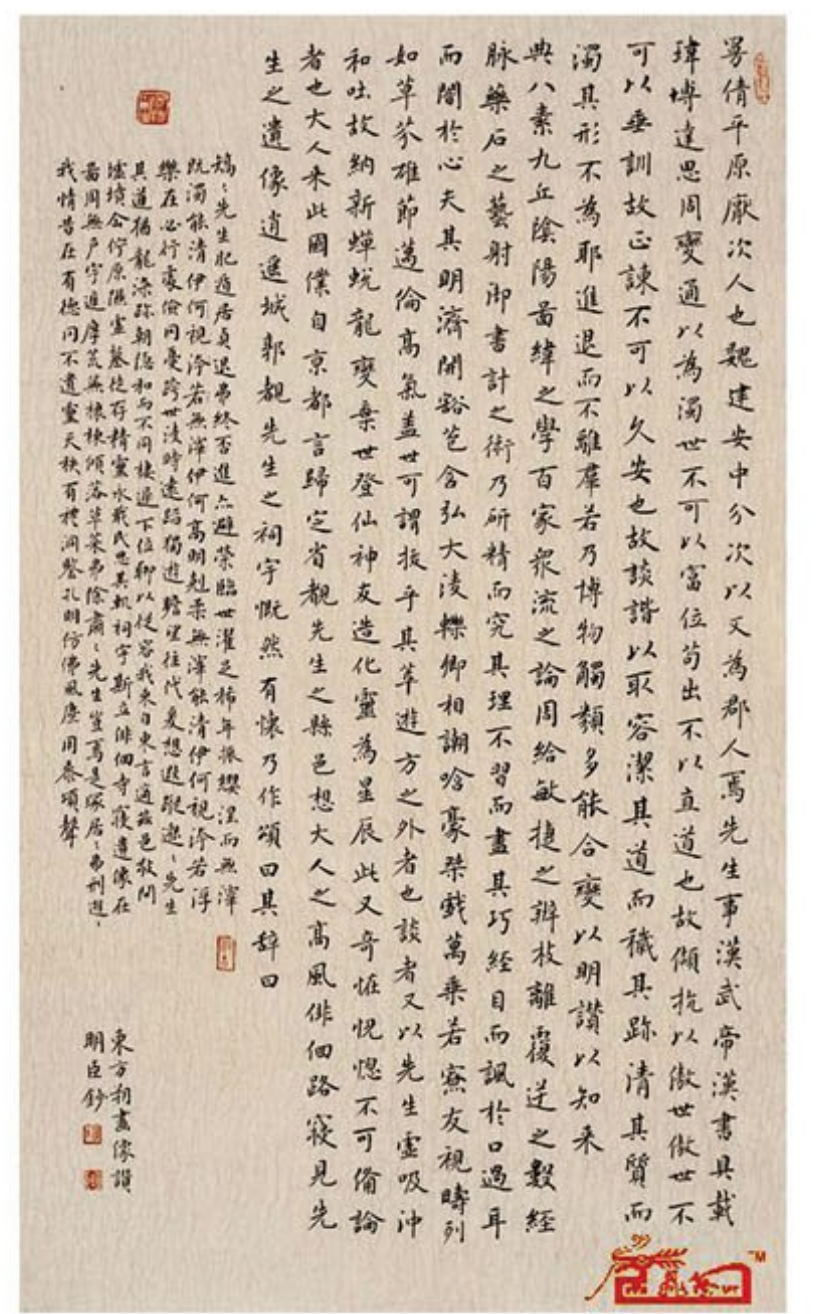 曼倩平原厭次人也魏建安中分次以又為郡人焉先生事漢武帝漢書具載
瑋博達思周變通以為濁世不可以富位苟出不以直道也故傾抗以傲世傲世不
可以垂訓故正諫不可以久安也故談諧以取容潔其道而穢其跡清其質而
濁其形不為耶進退而不離羣若乃博物觸類多能合變以明讃以知來
典八素九丘陰陽啚緯之學百家衆流之論周給敏捷之辯枝離覆逆之數經
脉藥石之藝射御書計之術乃研精而究其理不習而盡其巧經目而諷於口過耳
而闇於心夫其明濟開豁苞含弘大淩轢卿相謿哈豪桀戲萬乘若寮友視疇列
如草芥雄節邁倫高氣盖世可謂拔乎其萃遊方之外者也談者又以先生虛吸沖
和吐故納新蟬蛻龍變棄世登仙神友造化靈為星辰此又奇恠怳惚不可備論
者也大人來此國僕自京都言歸定省覩先生之縣邑想大人之高風俳佪路寢見先
生之遺像逍遥城郭覩先生之祠宇慨然有懷乃作頌曰其辞曰
矯〻先生肥遁居貞退弗終否進亦避榮臨世濯足稀年振纓涅而無滓
既濁能清伊何視泠若無滓伊何高明剋柔無滓能清伊何視洿若浮
樂在必行處儉罔憂跨世淩時遠蹈獨遊瞻望往代爰想遐蹤邈〻先生
其道猶龍染跡朝隐和而不同棲遁下位聊以從容我来自東言適茲邑敬問
墟墳企佇原隰靈墓徒存精靈永戢民思其軌祠宇斯立俳佪寺寢遺像在
啚周無戶宇進庠荒蕪榱棟傾落草萊弗除肅〻先生豈焉是㞐居〻弗刑遊〻
我情昔在有德罔不遺靈天秩有禮洞鑒孔明仿佛風塵用垂頌聲
東方朔畫像讃
明臣鈔